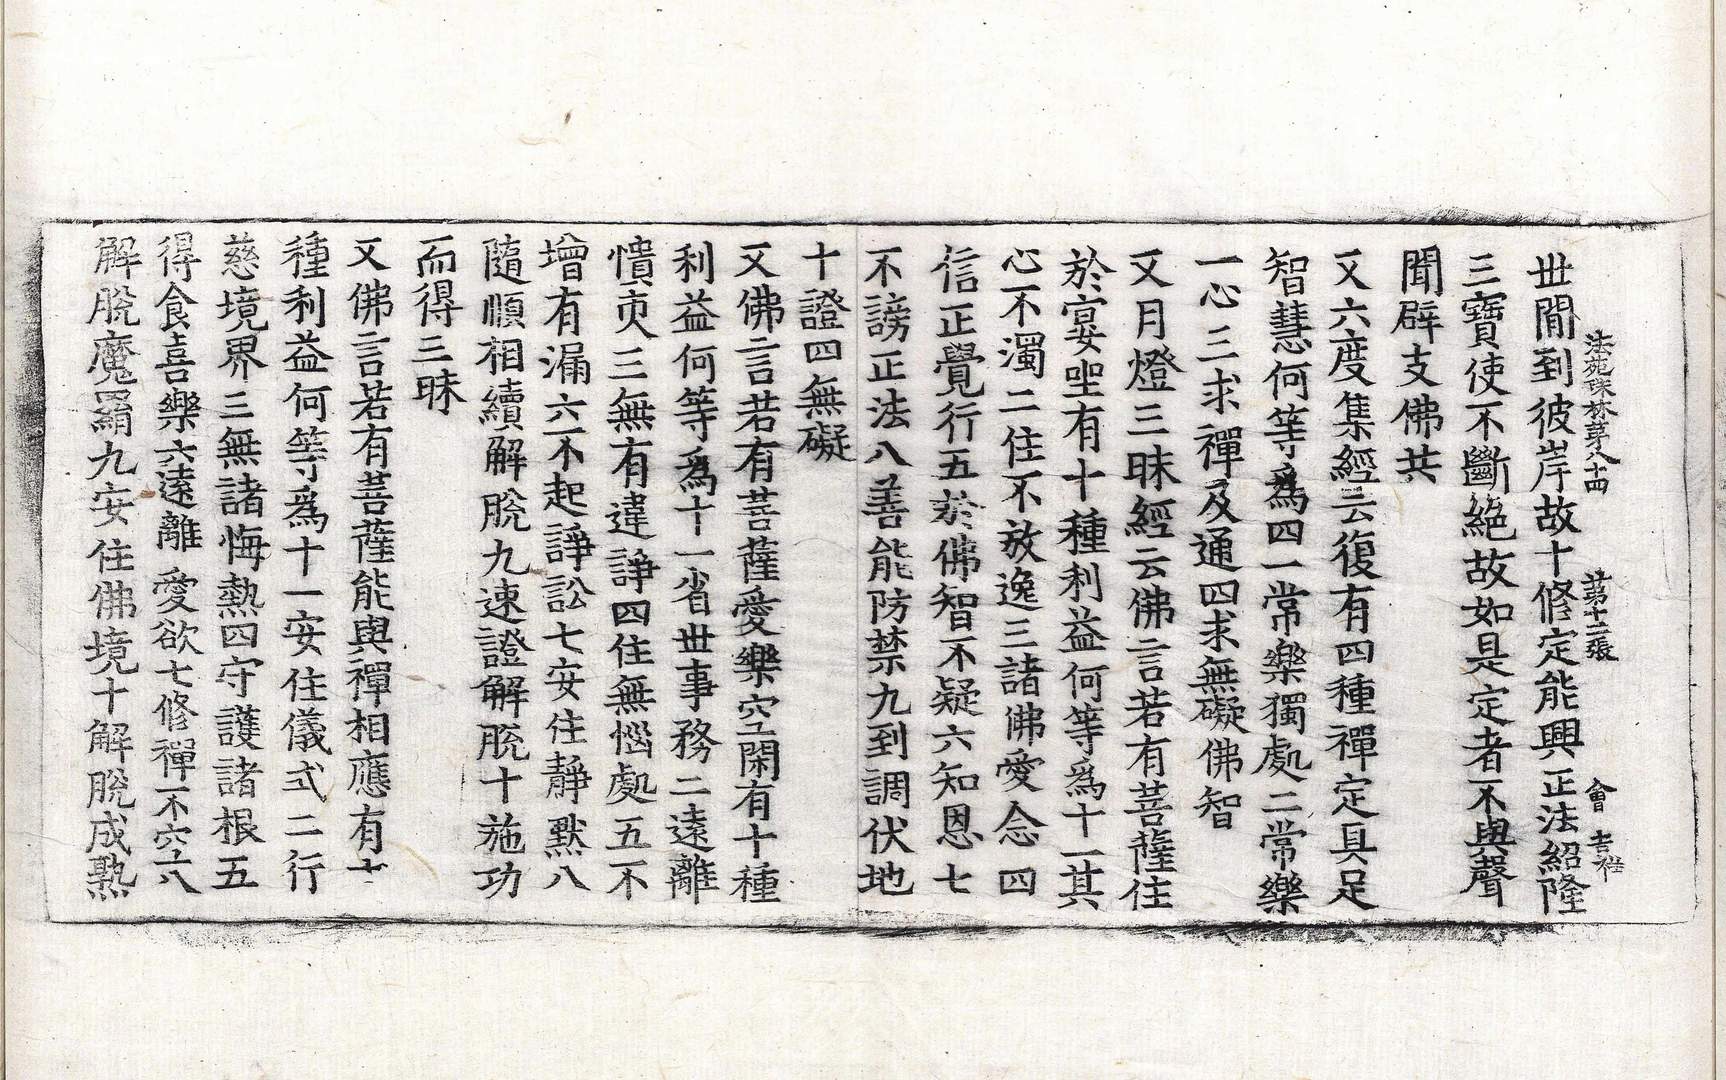 法苑珠林苐八十四 苐十二張 會 吉祥
世間到彼岸故十修定能興正法紹隆
三寶使不斷絕故如是定者不與聲
聞辟支佛共
又六度集經云復有四種禪定具足
智慧何等爲四一常樂獨處二常樂
一心三求禪及通四求無礙佛智
又月燈三昧經云佛言若有菩薩住
於宴坐有十種利益何等爲十一其
心不濁二住不放逸三諸佛愛念四
信正覺行五於佛智不疑六知恩七
不謗正法八善能防禁九到調伏地
十證四無礙
又佛言若有菩薩愛樂空閑有十種
利益何等爲十一省世事務二遠離
憒丙三無有違諍四住無惱處五不
增有漏六不起諍訟七安住靜默八
隨順相續解脫九速證解脫十施功
而得三昧
又佛言若有菩薩能與禪相應有十
種利益何等爲十一安住儀式二行
慈境界三無諸悔熱四守護諸根五
得食喜樂六遠離愛欲七修禪不空八
解脫魔羂九安住佛境十解脫成熟